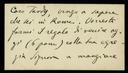 Caro Tardy, vengo a sapere
che sei in Roma. Vorresti
farmi il regalo di venire og-
gi (6 pom.) colla tua egre-
gia Signora a mangiare